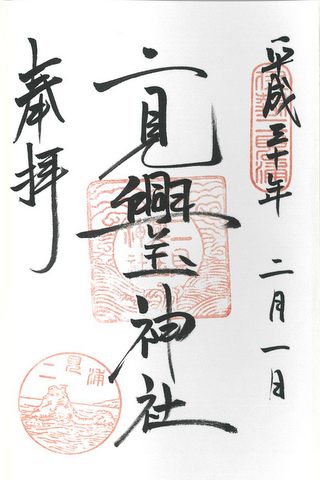 平成三十年 二月一日
二見興玉神社
奉拝
二見浦